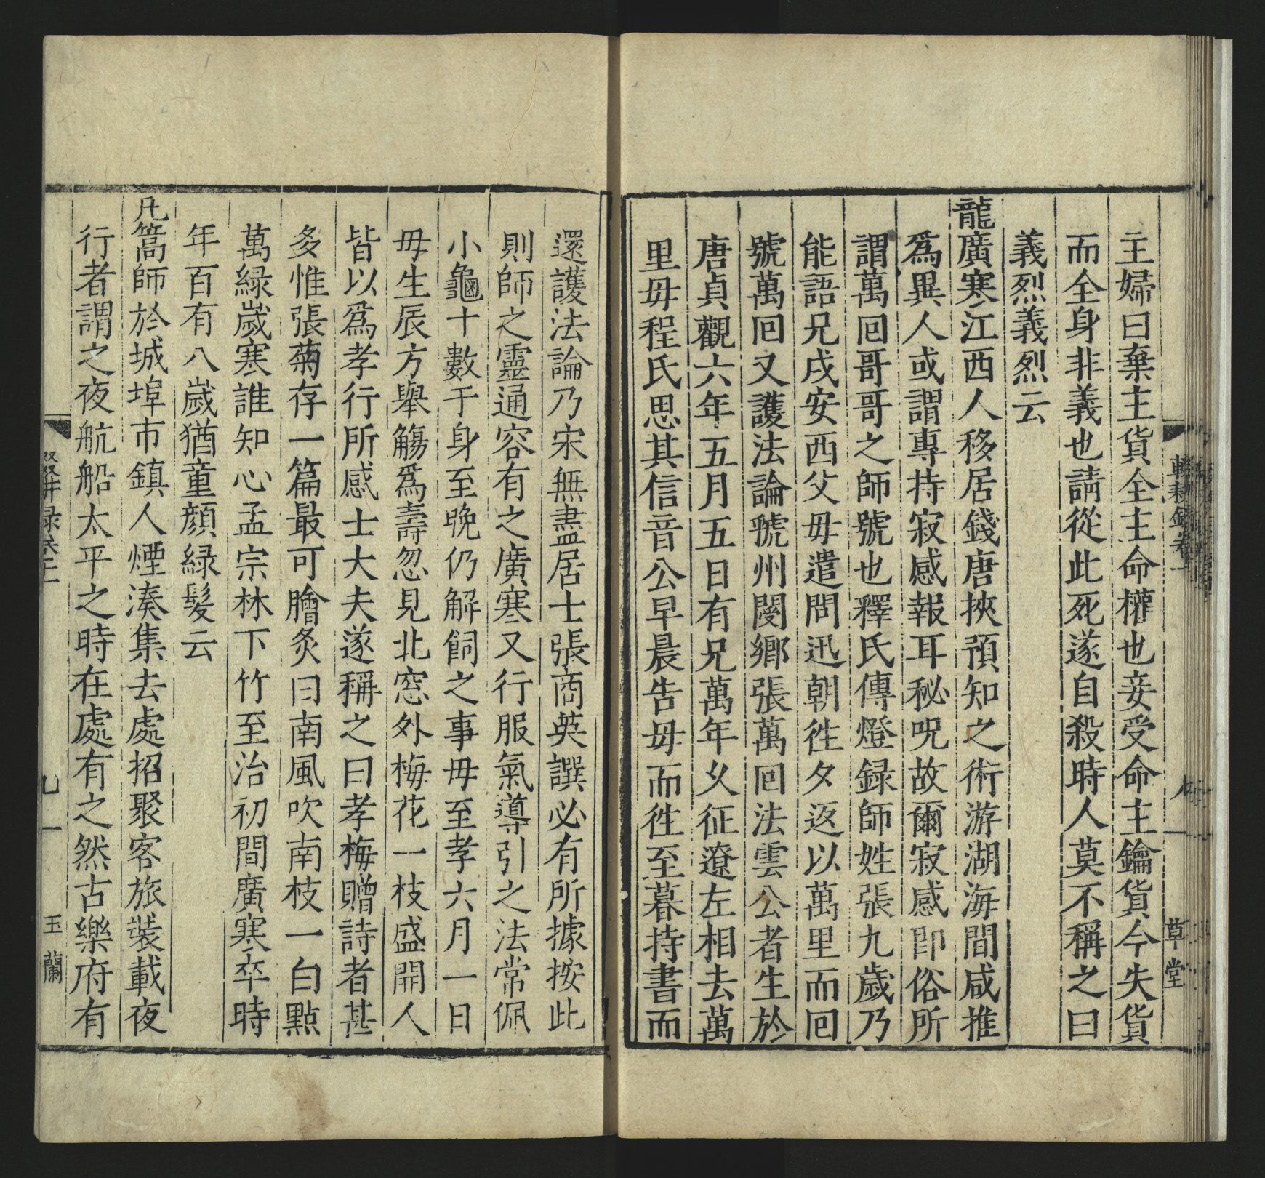 主婦曰棄主貨全主命權也妾受命主鑰貨今失貨
而全身非義也請從此死遂自殺時人莫不稱之曰
義烈義烈云
龍廣寒江西人移居錢唐挾預知之術游湖海間咸推
爲異人或謂專持寂感報耳秘呪故爾寂感卽俗所
謂萬回哥哥之師號也釋氏傳燈録師姓張九歲乃
能語兄戍安西父毋遣問迅朝徃夕返以萬里而回
號萬回又護法論虢州閿鄉張萬回法雲公者生於
唐貞觀六年五月五日有兄萬年久征遼左相去萬
里毋程氏思其信音公早晨告毋而徃至暮持書而
還護法論乃宋無盡居士張商英譔必有所據按此
則師之靈通容有之廣寒又行服氣導引之法常佩
小龜十數于身至晚仍解飼之事毋至孝六月一日
毋生辰方舉觴爲壽忽見北窓外梅花一枝盛開人
皆以爲孝行所感士大夫遂稱之曰孝梅贈詩者甚
多惟張菊存一篇最可膾炙曰南風吹南枝一白點
萬緑歲寒誰知心孟宗林下竹至治初間廣寒卒時
年百有八歲猶童顔緑髪云
凡篙師於城埠市鎮人煙湊集去處招聚客旅裝載夜
行者謂之夜航船太平之時在處有之然古樂府有
九
玉蘭
草堂